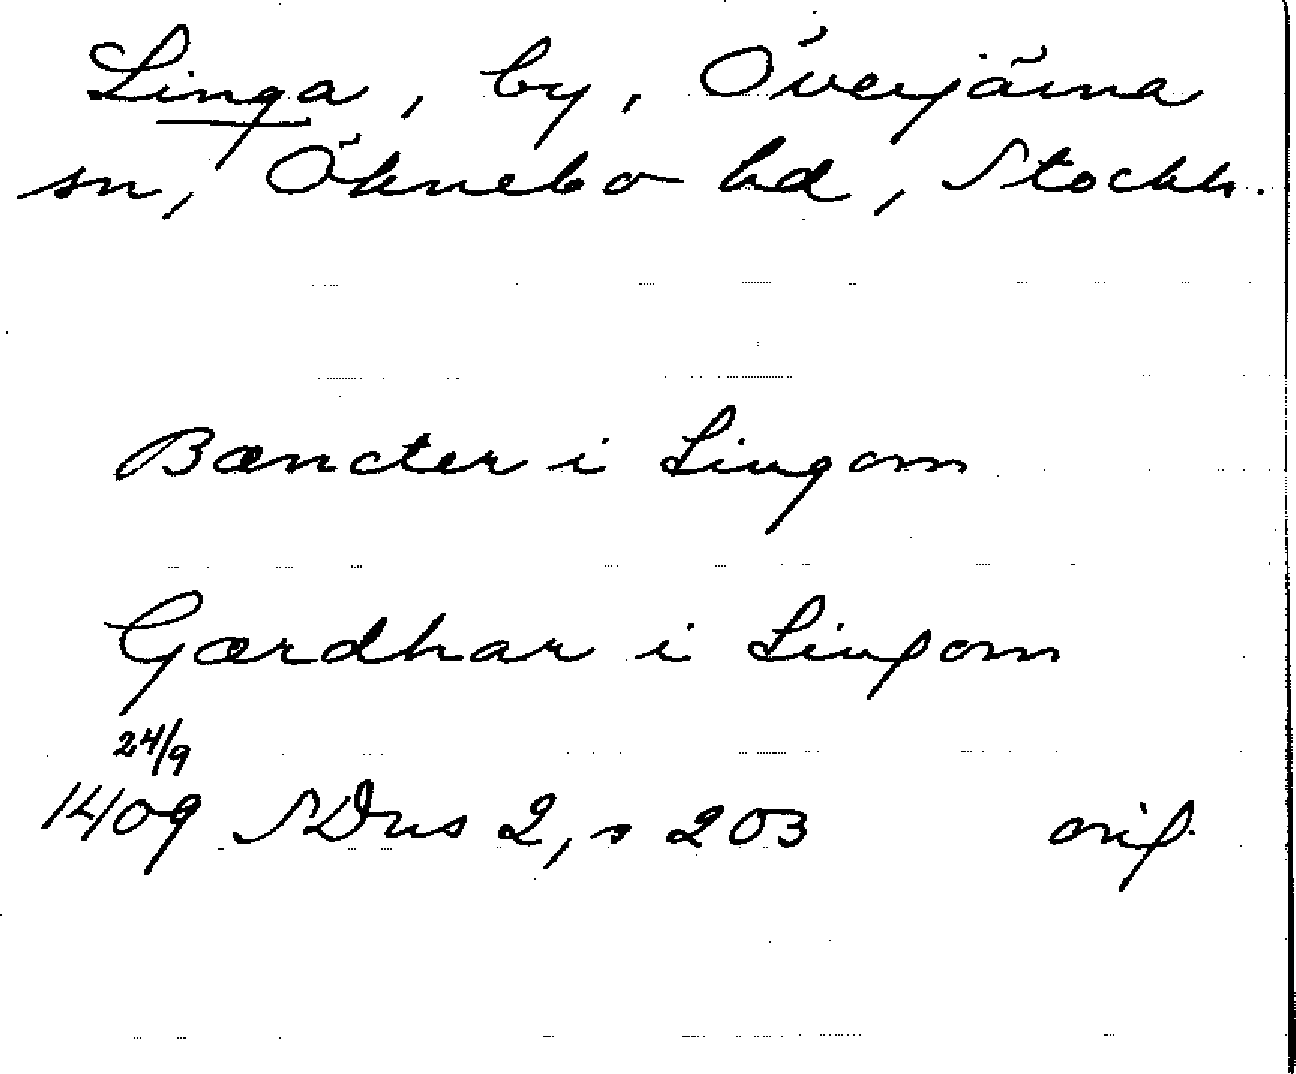 Linga, by, Överjärna
sn, Öknebo hd, Stockh.
Bæncter i Lingom
Gærdhar i Lingom
24/9
1409 SDns 2, s 203 orig.